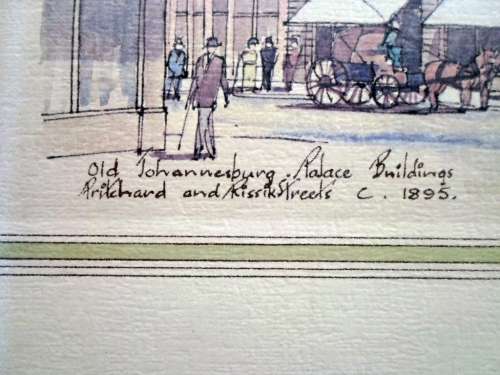 Old Johannesburg. Palace Buildings
Pritchard and Rissik Streets C. 1895.